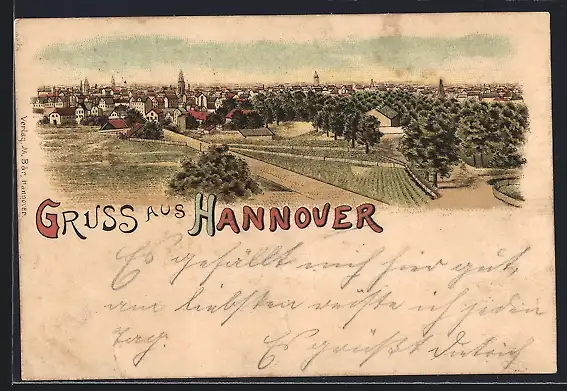 Verlag M. Bär, Hannover.
GRUSS AUS HANNOVER
Es gefällt mich hier gut,
am liebsten reiste ich jeden
Tag.
Es grüßt Dietrich